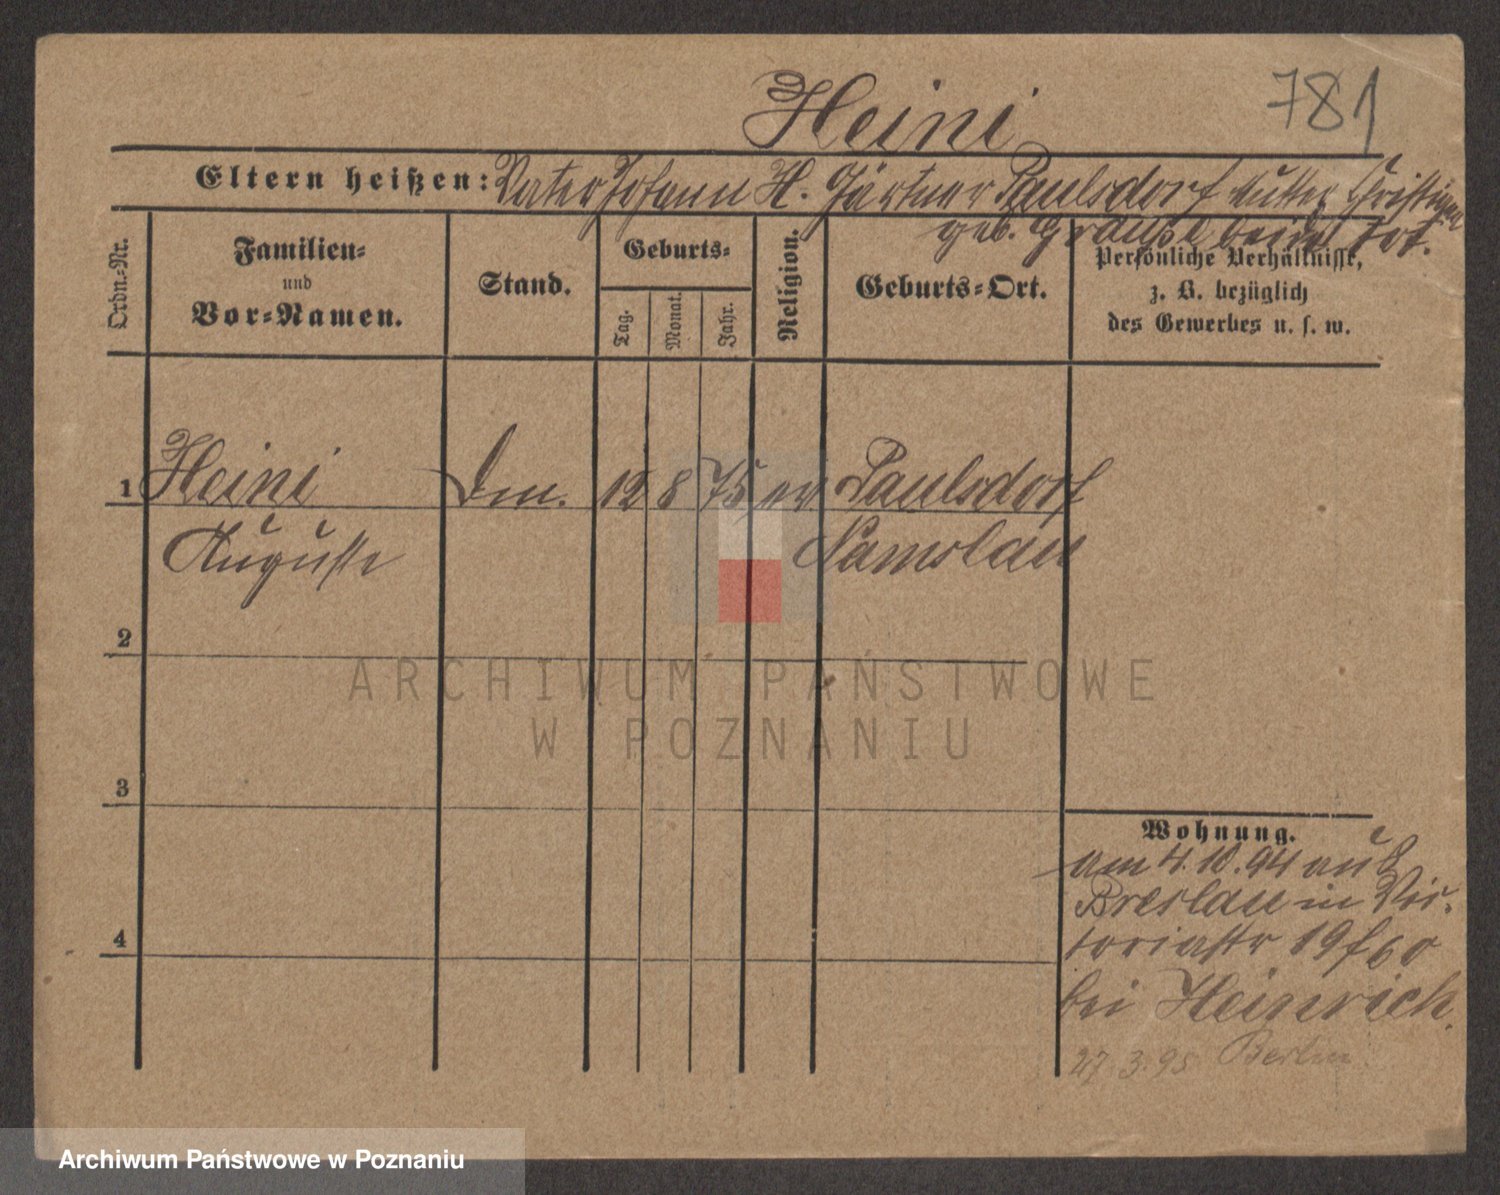 Heini
781
Eltern heißen: Vater Johann H. Gärtner Paulsdorf Mutter Christiane
geb. beide tot.
Ordn.-Nr.
Familien-
und
Vor-Namen.
Stand.
Geburts-
Tag.
Monat.
Jahr.
Religion.
Geburts-Ort.
Persönliche Verhältnisse,
z. B. bezüglich
des Gewerbes u. s. w.
1 Heini Dm. 12 8 75 ev. Paulsdorf
Auguste Namslau
2
3
4
Wohnung.
am 4.10.94 aus
Breslau in Vic-
toriastr 19
bei Heinrich.
27.3.95 Berlin
ARCHIWUM PAŃSTWOWE
W POZNANIU
Archiwum Państwowe w Poznaniu